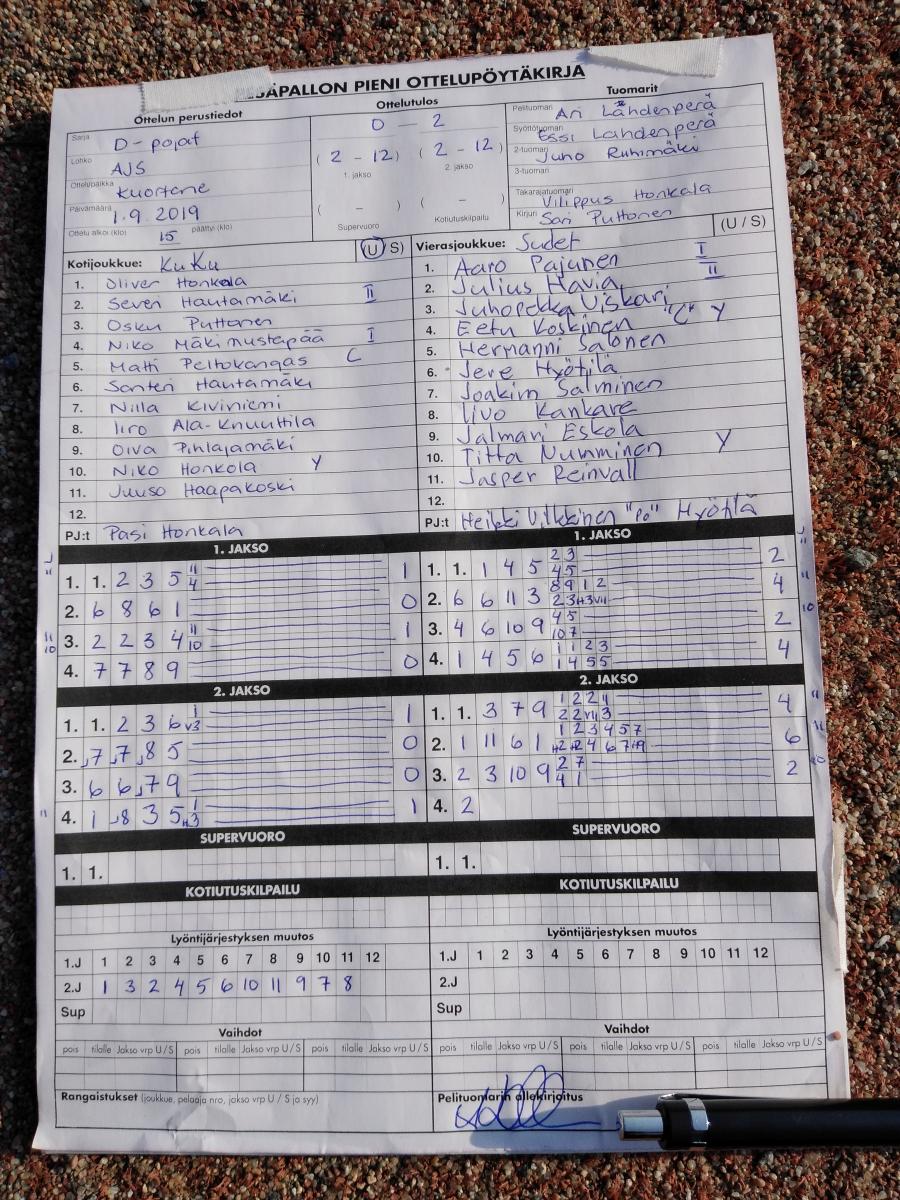 PESÄPALLON PIENI OTTELUPÖYTÄKIRJA
Ottelun perustiedot
Sarja D-pojat
Lohko AJS
Ottelupaikka Kuortane
Päivämäärä 1.9.2019
Ottelu alkoi (klo) 15 päättyi (klo)
Ottelutulos
0 - 2
(2 - 12) (2 - 12)
1. jakso 2. jakso
( - ) ( - )
Supervuoro Kotiutuskilpailu
Tuomarit
Pelituomari Ari Lähdenperä
Syöttötuomari Essi Lahdenperä
2-tuomari Juho Ruhimäki
3-tuomari
Takarajatuomari Vilippus Honkala
Kirjuri Sari Puttonen
Kotijoukkue: KuKu (U/S)
1. Oliver Honkala
2. Severi Hautamäki II
3. Osku Puttonen
4. Niko Mäkimustapää I
5. Matti Peltokangas C
6. Santeri Hautamäki
7. Niila Kiviniemi
8. Iiro Ala-Knuuttila
9. Oiva Pihlajamäki
10. Niko Honkola Y
11. Juuso Haapakoski
12.
PJ:t Pasi Honkala
Vierasjoukkue: Sudet (U/S)
1. Aaro Pajunen I
2. Julius Havia II
3. Juhopekka Viskari
4. Eetu Koskinen "C" Y
5. Hermanni Salonen
6. Jere Hyötilä
7. Joakim Salminen
8. Uvo Kankare
9. Jalmari Eskola
10. Titta Numminen Y
11. Jasper Reinvall
12.
PJ:t Heikki Vilkkinen "Po" Hyötilä
1. JAKSO
1. 1. 2 3 5 11 4 1
2. 6 8 6 1 0
3. 2 2 3 4 11 10 1
4. 7 7 8 9 0
2. JAKSO
1. 1. 2 3 6 1 v3 1
2. 7 7 8 5 0
3. 6 6 7 9 0
4. 1 8 3 5 1 H3 1
SUPERVUORO
1. 1.
KOTIUTUSKILPAILU
1. JAKSO
1. 1. 1 4 5 2 3 4 5 2
2. 6 6 11 3 8 9 1 2 2 3 H3 v11 4
3. 4 6 10 9 4 5 10 7 2
4. 1 4 5 6 1 1 2 3 1 4 5 5 4
2. JAKSO
1. 1. 3 7 9 1 2 2 11 2 2 v11 3 4
2. 1 11 6 1 1 2 3 4 5 7 H2 H2 4 6 7 H9 6
3. 2 3 10 9 2 7 4 1 2
4. 2
SUPERVUORO
1. 1.
KOTIUTUSKILPAILU
Lyöntijärjestyksen muutos
1.J 1 2 3 4 5 6 7 8 9 10 11 12
2.J 1 3 2 4 5 6 10 11 9 7 8
Sup
Vaihdot
pois tilalle Jakso vrp U/S pois tilalle Jakso vrp U/S pois tilalle Jakso vrp U/S
Rangaistukset (joukkue, pelaaja nro, jakso vrp U / S ja syy)
Lyöntijärjestyksen muutos
1.J 1 2 3 4 5 6 7 8 9 10 11 12
2.J
Sup
Vaihdot
pois tilalle Jakso vrp U/S pois tilalle Jakso vrp U/S pois tilalle Jakso vrp U/S
Pelituomarin allekirjoitus